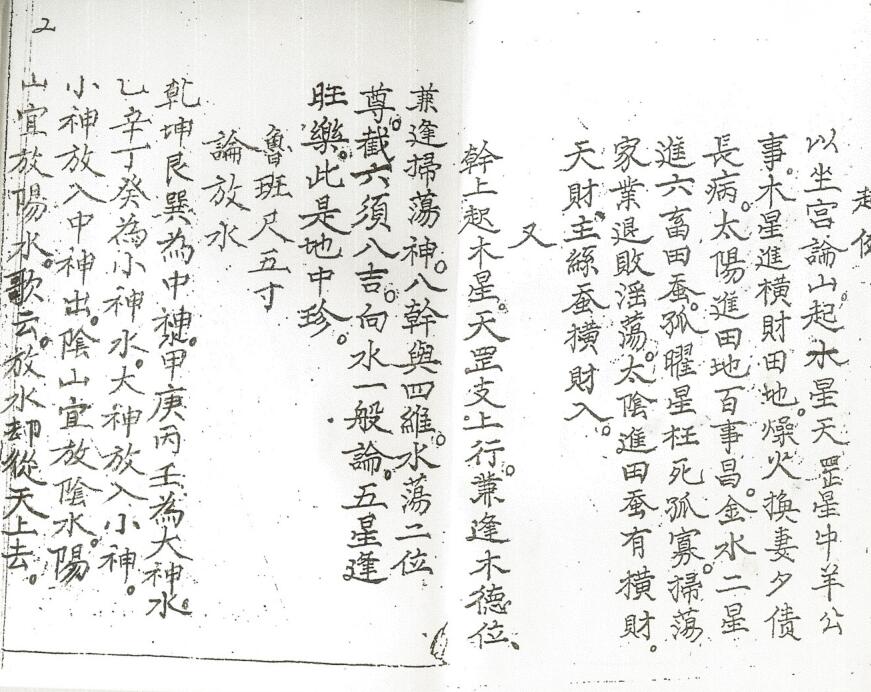 起例
以坐宫論山起水星天罡星中羊公
事。木星進橫財田地。燥火換妻夕債
長病。太陽進田地百事昌。金水二星
進六畜田蚕。孤曜星枉死孤寡。掃荡
家業退敗滛荡。太陰進田蚕有橫財。
天財主絲蚕橫財入。
又
幹上起木星。天罡支上行。兼逢木德位、
兼逢掃荡神。八幹與四維。水荡二位
尊。截六須八吉。向水一般論。五星逢
旺樂。此是地中珍。
魯班尺五寸
論放水
乾坤艮巽為中神。甲庚丙壬為大神水。
乙辛丁癸為小神水。大神放入小神。
小神放入中神出。陰山宜放陰水。陽
山宜放陽水。歌云。放水却從天上去。
2